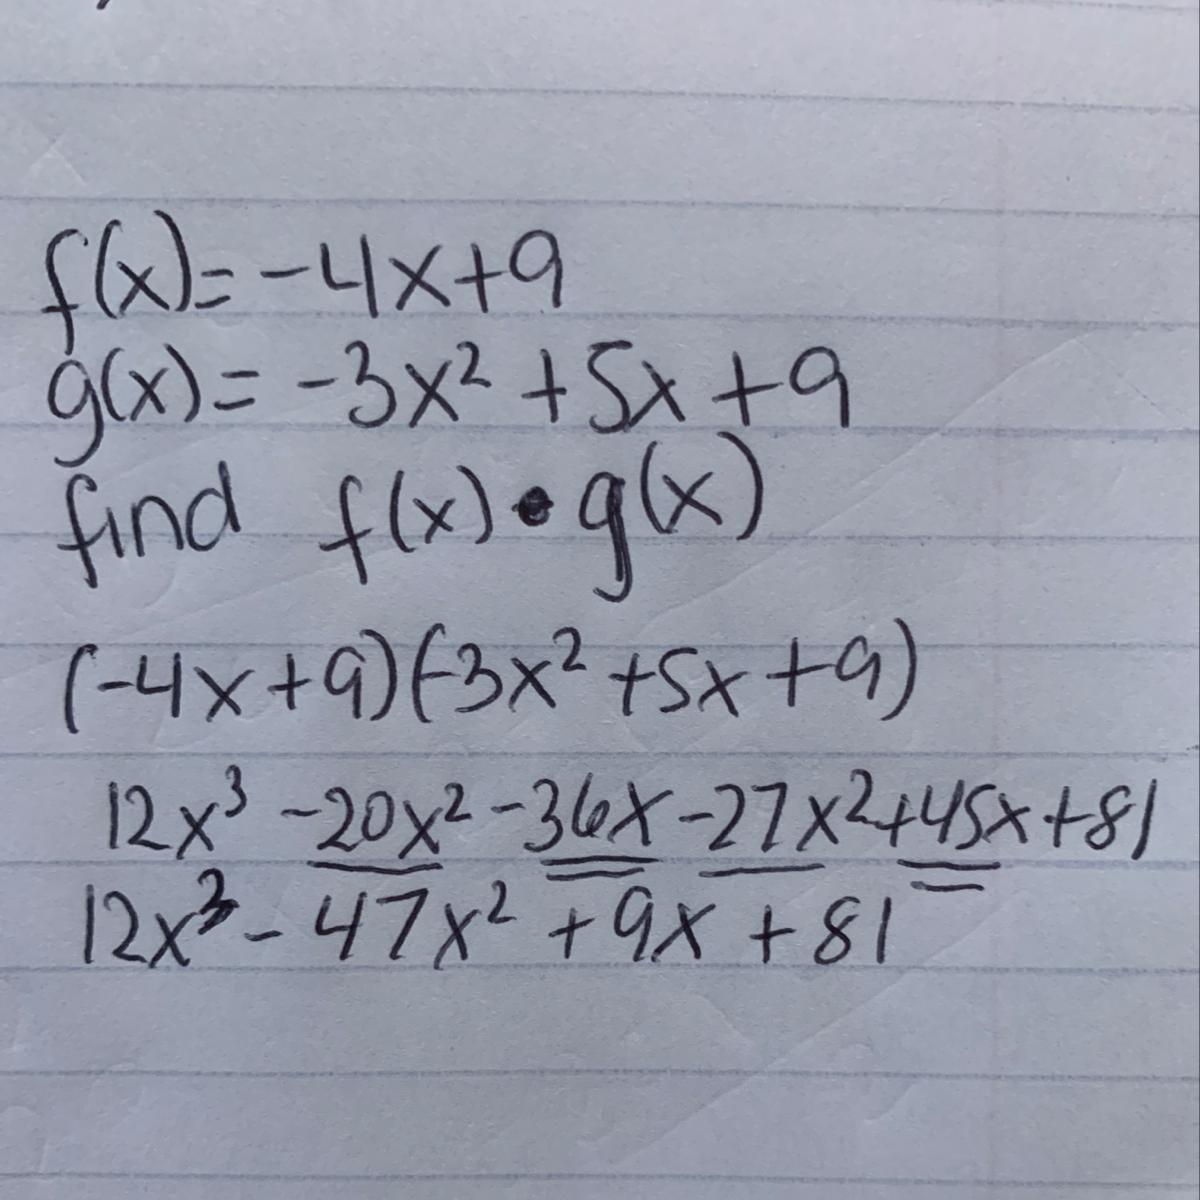 f(x)=-4x+9
g(x)= -3x² +5x +9
find f(x)•g(x)
(-4x+9)(-3x²+5x+9)
12x³ -20x² -36x -27x²+45x+81
12x³ - 47x² +9x +81